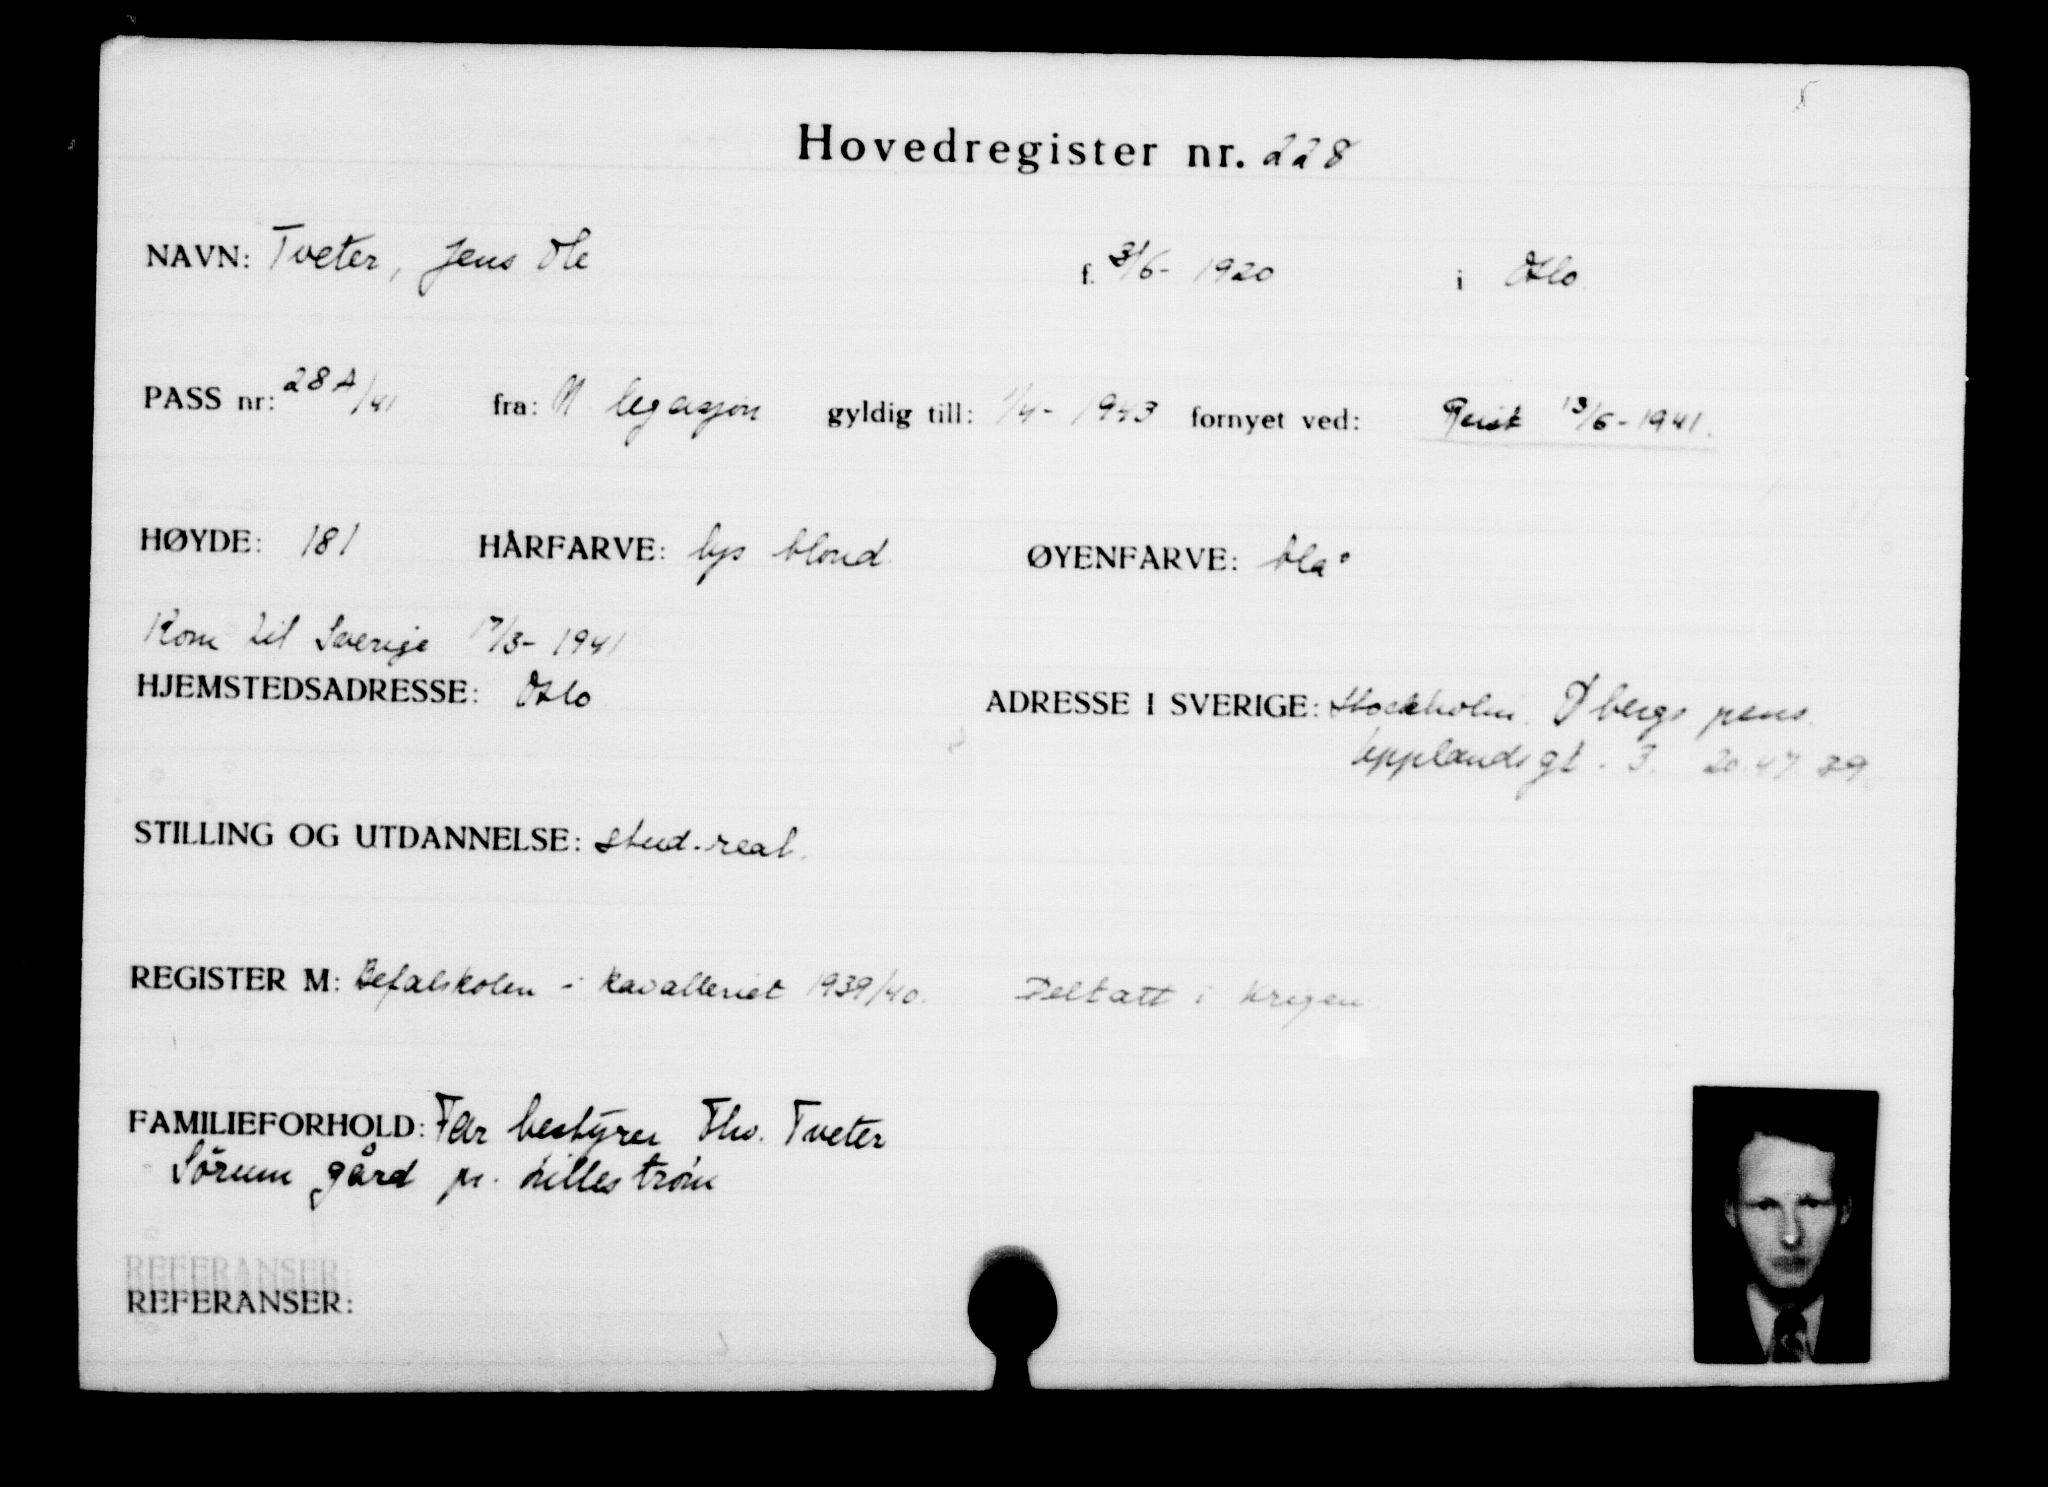 Hovedregister nr. 228
NAVN: Tveter, Jens Ole f. 3/6- 1920 i Oslo.
PASS nr: 28A/41 fra: N legasjon gyldig till: 1/4- 1943 fornyet ved: Reist 13/6-1941.
HØYDE: 181 HÅRFARVE: lys blond. ØYENFARVE: blå
Kom til Sverige 17/3- 1941
HJEMSTEDSADRESSE: Oslo ADRESSE I SVERIGE: Stockholm. Øbergs pens.
Upplandsgt. 3. 20.47.39
STILLING OG UTDANNELSE: stud. real.
REGISTER M: Befalskolen i kavalleriet 1939/40. Deltatt i krigen.
FAMILIEFORHOLD: Far bestyrer Thv. Tveter
Sörum gård pr. Lillestrøm
REFERANSER:
REFERANSER: